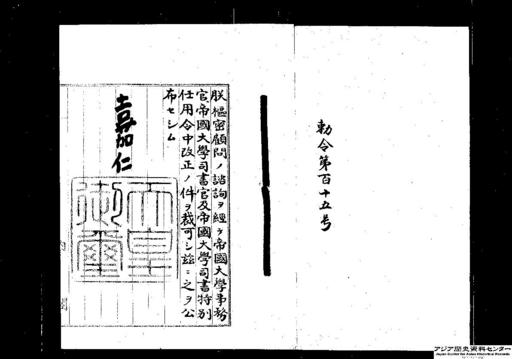 勅令第百十五号
朕樞密顧問ノ諮詢ヲ經テ帝國大學事務
官帝國大學司書官及帝國大學司書特別
任用令中改正ノ件ヲ裁可シ茲ニ之ヲ公
布セシム
嘉仁
天皇
御璽
アジア歴史資料センター
Japan Center for Asian Historical Records